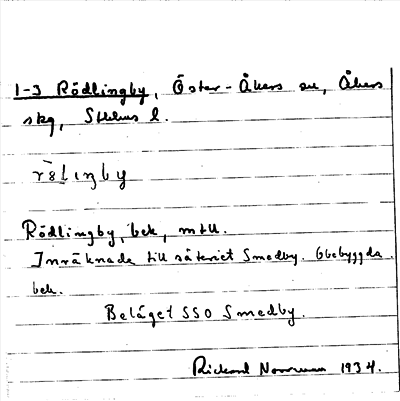 1-3 Rödlingby, Öster-Åkers sn, Åkers
skg, Sthlms l.
Rödlingby, bek, mtl.
Inräknade till säteriet Smedby. Obebyggda.
bek.
Beläget SSO Smedby.
Rickard Norrman 1934.